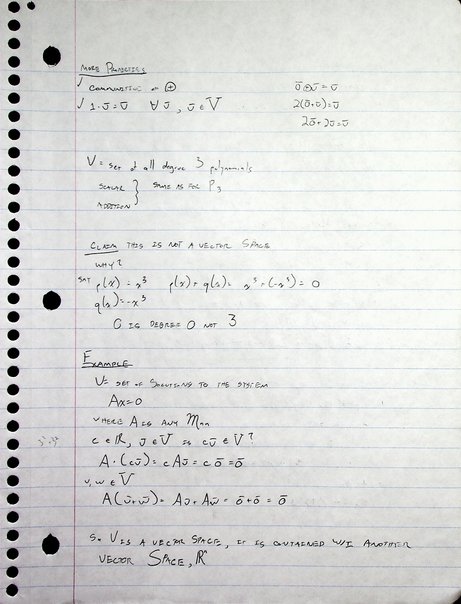 MORE PROPERTIES
✓ COMMUTATIVE OF ⊕
0̄ ⊕ ū = ū
✓ 1·ū = ū ∀ ū, ū ∈ V
2(0̄+ū) = ū
2ū + 2ū = ū
V = SET of all degree 3 polynomials
SCALAR
ADDITION } SAME AS FOR P₃
CLAIM THIS IS NOT A VECTOR SPACE
WHY?
SAY p(x) = x³ p(x) + q(x) = x³ + (-x³) = 0
q(x) = -x³
0 IS DEGREE 0 NOT 3
EXAMPLE
V = SET OF SOLUTIONS TO THE SYSTEM
Ax=0
WHERE A IS ANY Mmn
c ∈ ℝ, ū ∈ V IS cū ∈ V?
A·(cū) = cAū = c0̄ = 0̄
v, w ∈ V
A(ū+w̄) = Aū + Aw̄ = 0̄+0̄ = 0̄
So V IS A VECTOR SPACE, IT IS CONTAINED W/I ANOTHER
VECTOR SPACE, ℝⁿ